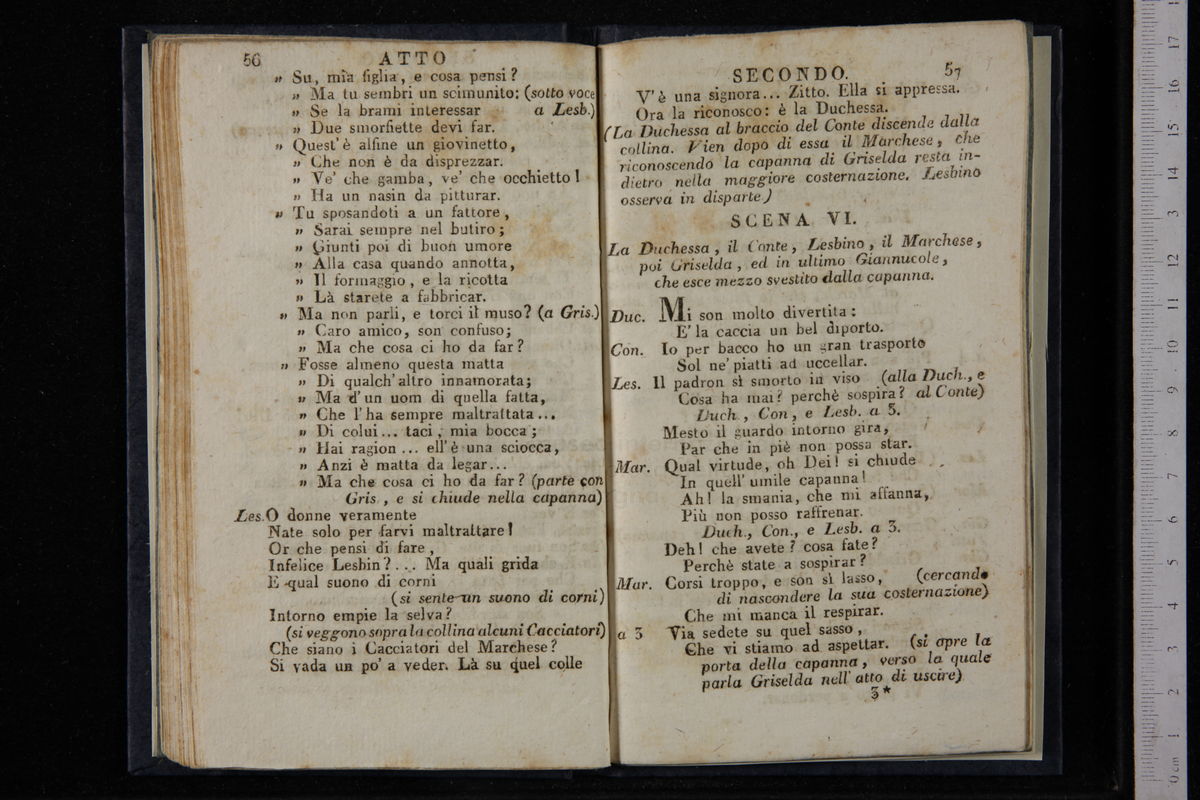 56 ATTO
„ Su, mia figlia, e cosa pensi?
„ Ma tu sembri un scimunito: (sotto voce
„ Se la brami interessar a Lesb.)
„ Due smorfiette devi far.
„ Quest'è alfine un giovinetto,
„ Che non è da disprezzar.
„ Ve' che gamba, ve' che occhietto!
„ Ha un nasin da pitturar.
„ Tu sposandoti a un fattore,
„ Sarai sempre nel butiro;
„ Giunti poi di buon umore
„ Alla casa quando annotta,
„ Il formaggio, e la ricotta
„ Là starete a fabbricar.
„ Ma non parli, e torci il muso? (a Gris.)
„ Caro amico, son confuso;
„ Ma che cosa ci ho da far?
„ Fosse almeno questa matta
„ Di qualch'altro innamorata;
„ Ma d'un uom di quella fatta,
„ Che l'ha sempre maltrattata...
„ Di colui... taci, mia bocca;
„ Hai ragion... ell'è una sciocca,
„ Anzi è matta da legar...
„ Ma che cosa ci ho da far? (parte con
Gris., e si chiude nella capanna)
Les. O donne veramente
Nate solo per farvi maltrattare!
Or che pensi di fare,
Infelice Lesbin?... Ma quali grida
E qual suono di corni
(si sente un suono di corni)
Intorno empie la selva?
(si veggono sopra la collina alcuni Cacciatori)
Che siano i Cacciatori del Marchese?
Si vada un po' a veder. Là su quel colle
SECONDO. 57
V'è una signora... Zitto. Ella si appressa.
Ora la riconosco: è la Duchessa.
(La Duchessa al braccio del Conte discende dalla
collina. Vien dopo di essa il Marchese, che
riconoscendo la capanna di Griselda resta in-
dietro nella maggiore costernazione. Lesbino
osserva in disparte)
SCENA VI.
La Duchessa, il Conte, Lesbino, il Marchese,
poi Griselda, ed in ultimo Giannucole,
che esce mezzo svestito dalla capanna.
Duc. Mi son molto divertita:
E' la caccia un bel diporto.
Con. Io per bacco ho un gran trasporto
Sol ne' piatti ad uccellar.
Les. Il padron sì smorto in viso (alla Duch., e
Cosa ha mai? perchè sospira? al Conte)
Duch., Con, e Lesb. a 3.
Mesto il guardo intorno gira,
Par che in piè non possa star.
Mar. Qual virtude, oh Dei! si chiude
In quell'umile capanna!
Ah! la smania, che mi affanna,
Più non posso raffrenar.
Duch., Con., e Lesb. a 3.
Deh! che avete? cosa fate?
Perchè state a sospirar?
Mar. Corsi troppo, e son sì lasso, (cercando
di nascondere la sua costernazione)
Che mi manca il respirar.
a 3 Via sedete su quel sasso,
Che vi stiamo ad aspettar. (si apre la
porta della capanna, verso la quale
parla Griselda nell'atto di uscire)
3*
0 cm 1 2 3 4 5 6 7 8 9 10 11 12 13 14 15 16 17